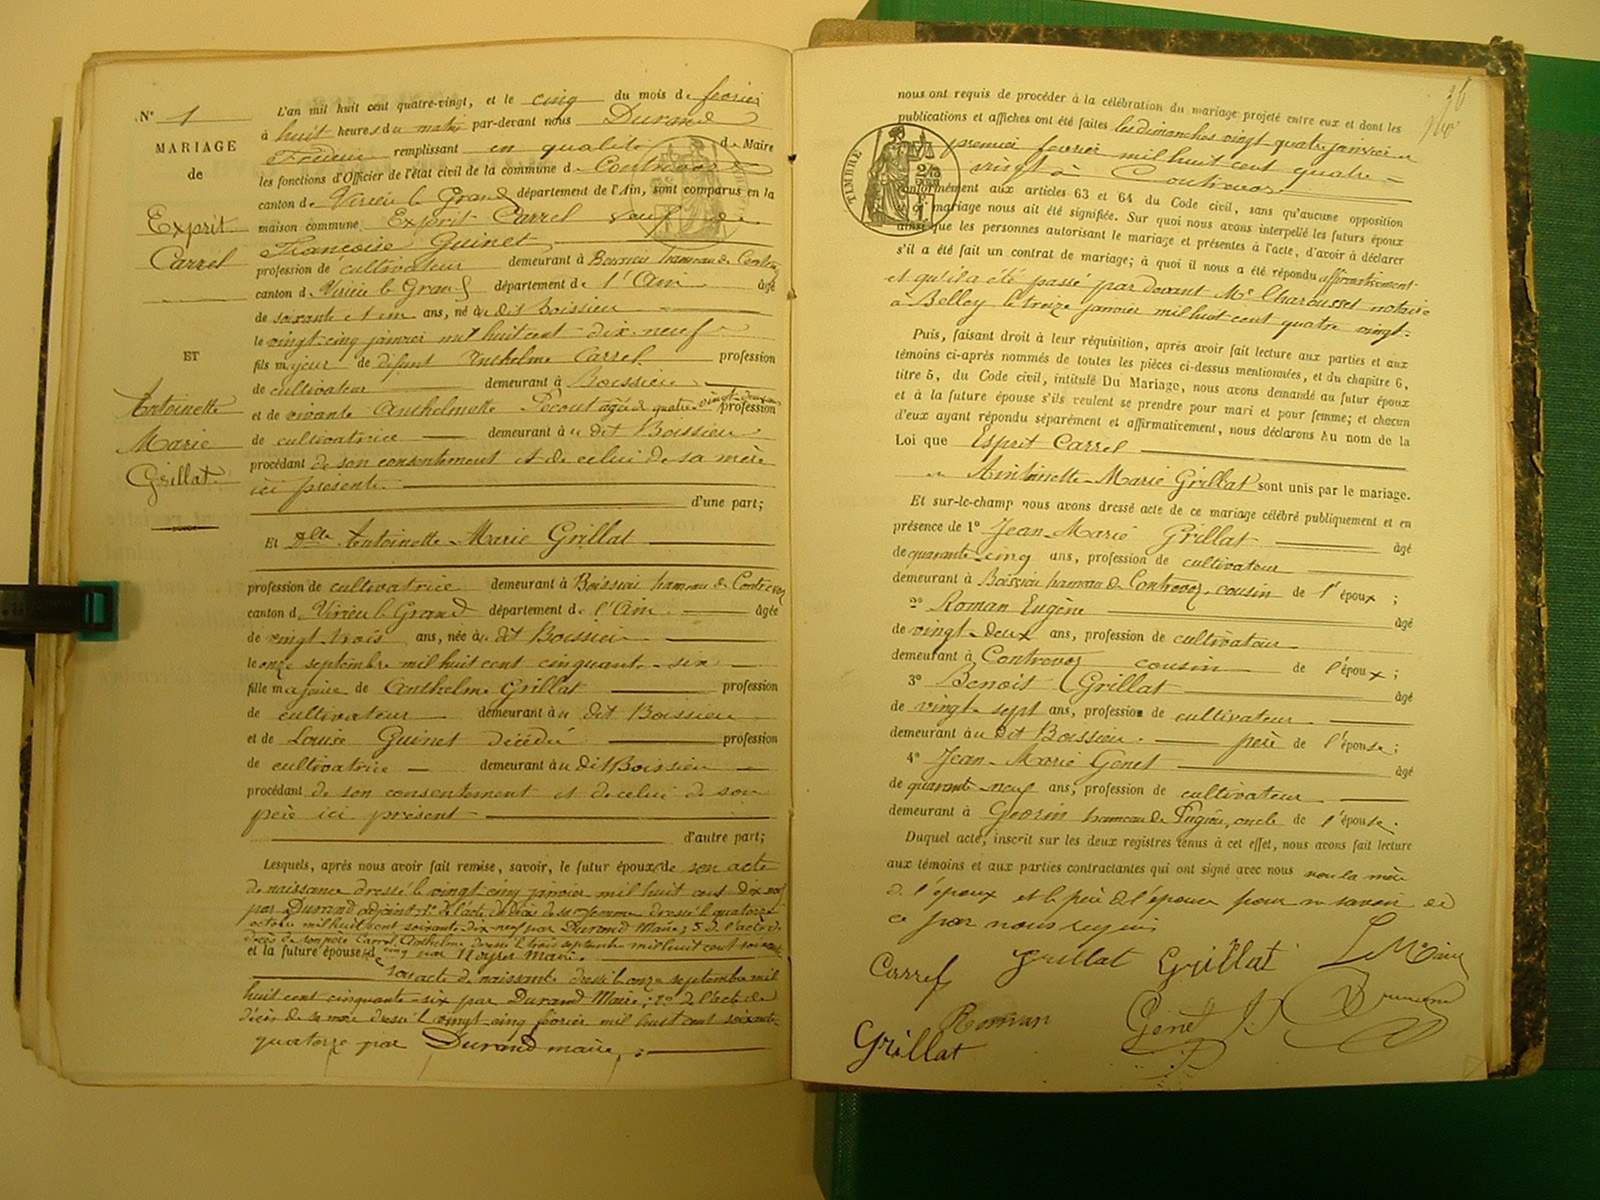 N° 1
MARIAGE
de
Exprit
Carrel
ET
Antoinette
Marie
Grillat
L'an mil huit cent quatre-vingt, et le cinq du mois de février
à huit heures du matin par-devant nous Durand
Frédéric remplissant en qualité de Maire
les fonctions d'Officier de l'état civil de la commune de Contrevoz
canton de Virieu le Grand département de l'Ain, sont comparus en la
maison commune Exprit Carrel veuf de
Francoise Guinet
profession de cultivateur demeurant à Boissieu hameau de Contrevoz
canton de Virieu le Grand département de l'Ain âgé
de soixante et un ans, né au dit Boissieu
le vingt-cinq janvier mil huit cent dix-neuf
fils majeur de défunt Anthelme Carrel profession
de cultivateur demeurant à Boissieu
et de vivante Anthelmette Pécout agée de quatre vingt-deux ans profession
de cultivatrice demeurant au dit Boissieu
procédant de son consentement et de celui de sa mère
ici présente.
d'une part;
Et Dlle Antoinette-Marie Grillat
profession de cultivatrice demeurant à Boissieu hameau de Contrevoz
canton de Virieu le Grand département de l'Ain. âgée
de vingt trois ans, née au dit Boissieu
le onze septembre mil huit cent cinquante-six
fille majeure de Anthelme Grillat profession
de cultivateur demeurant au dit Boissieu
et de Louise Guinet décédée profession
de cultivatrice demeurant au dit Boissieu
procédant de son consentement et de celui de son
père ici présent
d'autre part;
Lesquels, après nous avoir fait remise, savoir, le futur époux de son acte
de naissance dressé le vingt-cinq janvier mil huit cent dix neuf
par Durand adjoint; 2° de l'acte de décès de sa femme dressé le quatorze
octobre mil huit cent soixante dix-neuf par Durand Maire; 3° de l'acte de
décès de son père Carrel Anthelme dressé le trois septembre mil huit cent soixante
cinq par Maire.
et la future épouse, de
son acte de naissance dressé le onze septembre mil
huit cent cinquante-six par Durand Maire; 2° de l'acte de
décès de sa mère dressé le vingt-cinq février mil huit cent soixante
quatorze par Durand maire;
36
nous ont requis de procéder à la célébration du mariage projeté entre eux et dont les
publications et affiches ont été faites les dimanches vingt-quatre janvier et
premier février mil huit cent quatre-
vingt à Contrevoz
TIMBRE
conformément aux articles 63 et 64 du Code civil, sans qu'aucune opposition
à ce mariage nous ait été signifiée. Sur quoi nous avons interpellé les futurs époux
ainsi que les personnes autorisant le mariage et présentes à l'acte, d'avoir à déclarer
s'il a été fait un contrat de mariage; à quoi il nous a été répondu affirmativement.
et qu'il a été passé par devant Me Charousset notaire
à Belley le treize janvier mil huit cent quatre vingt.
Puis, faisant droit à leur réquisition, après avoir fait lecture aux parties et aux
témoins ci-après nommés de toutes les pièces ci-dessus mentionnées, et du chapitre 6,
titre 5, du Code civil, intitulé Du Mariage, nous avons demandé au futur époux
et à la future épouse s'ils veulent se prendre pour mari et pour femme; et chacun
d'eux ayant répondu séparément et affirmativement, nous déclarons au nom de la
Loi que Esprit Carrel
et Antoinette-Marie Grillat sont unis par le mariage.
Et sur-le-champ nous avons dressé acte de ce mariage célébré publiquement et en
présence de 1° Jean-Marie Grillat âgé
de quarante-cinq ans, profession de cultivateur
demeurant à Boissieu hameau de Contrevoz, cousin de l'époux;
2° Roman Eugène âgé
de vingt-deux ans, profession de cultivateur
demeurant à Contrevoz cousin de l'époux;
3° Benoit Grillat âgé
de vingt-sept ans, profession de cultivateur
demeurant au dit Boissieu. père de l'épouse;
4° Jean-Marie Genet âgé
de quarante-neuf ans, profession de cultivateur
demeurant à hameau de Pugieu, oncle de l'épouse.
Duquel acte, inscrit sur les deux registres tenus à cet effet, nous avons fait lecture
aux témoins et aux parties contractantes qui ont signé avec nous non la mère
de l'époux et le père de l'épouse pour ne savoir de
ce par nous requis
Carrel Grillat Grillat Le Maire
Grillat Roman Genet J Durand